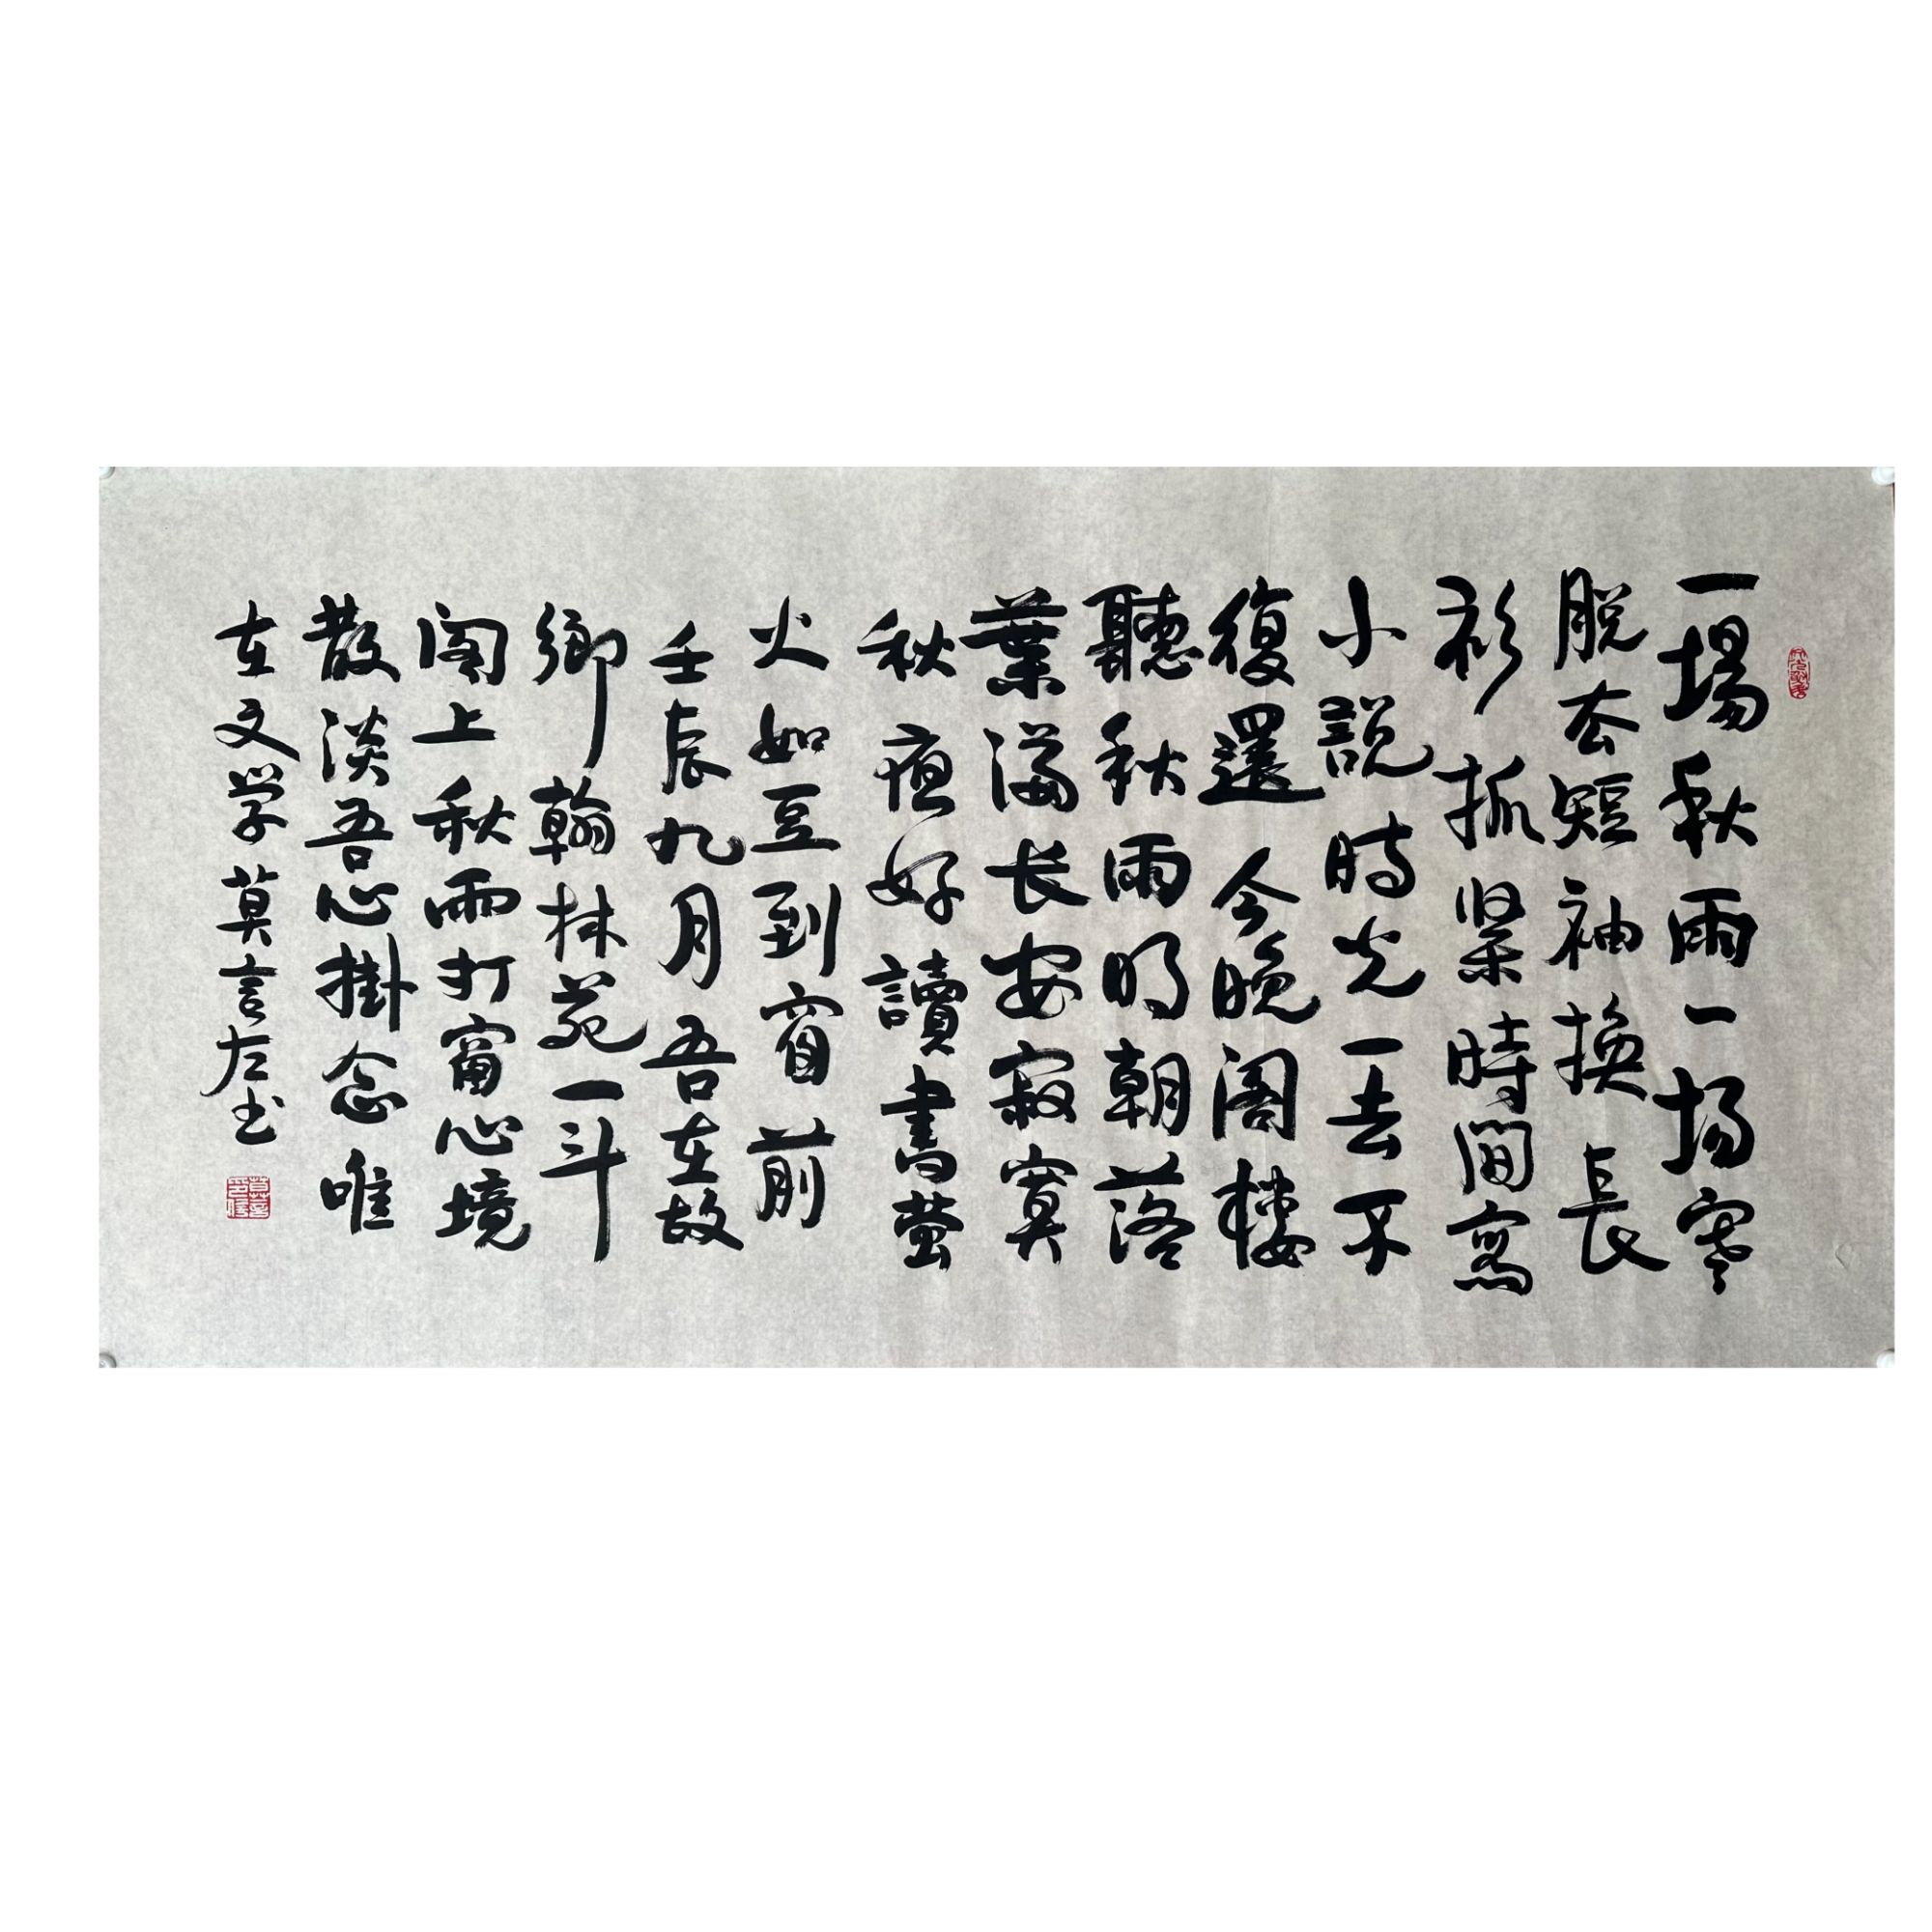 一場秋雨一场寒
脱去短袖换長
衫抓紧時間寫
小說時光一去不
復還今晚阁樓
聽秋雨明朝落
葉滿长安寂寞
秋夜好讀書螢
火如豆到窗前
壬辰九月吾在故
鄉翰林苑一斗
阁上秋雨打窗心境
散淡吾心掛念唯
在文学莫言左书